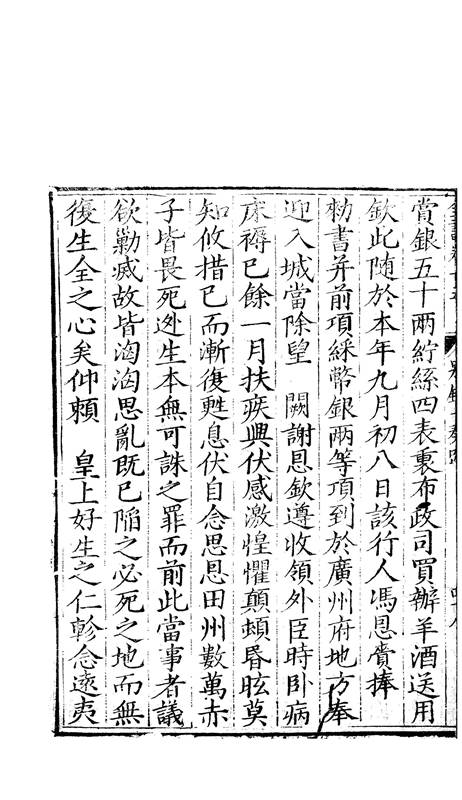 賞銀五十兩紵絲四表裏布政司買辦羊酒送用
欽此隨於本年九月初八日該行人馮恩賫捧
勑書并前項綵幣銀兩等項到於廣州府地方奉
迎入城當除望 闕謝恩欽遵收領外臣時卧病
床褥已餘一月扶疾興伏感激惶懼顛頓昏眩莫
知攸措已而漸復甦息伏自念思恩田州數萬赤
子皆畏死逃生本無可誅之罪而前此當事者議
欲勦滅故皆洶洶思亂既已陷之必死之地而無
復生全之心矣仰賴 皇上好生之仁軫念遠夷